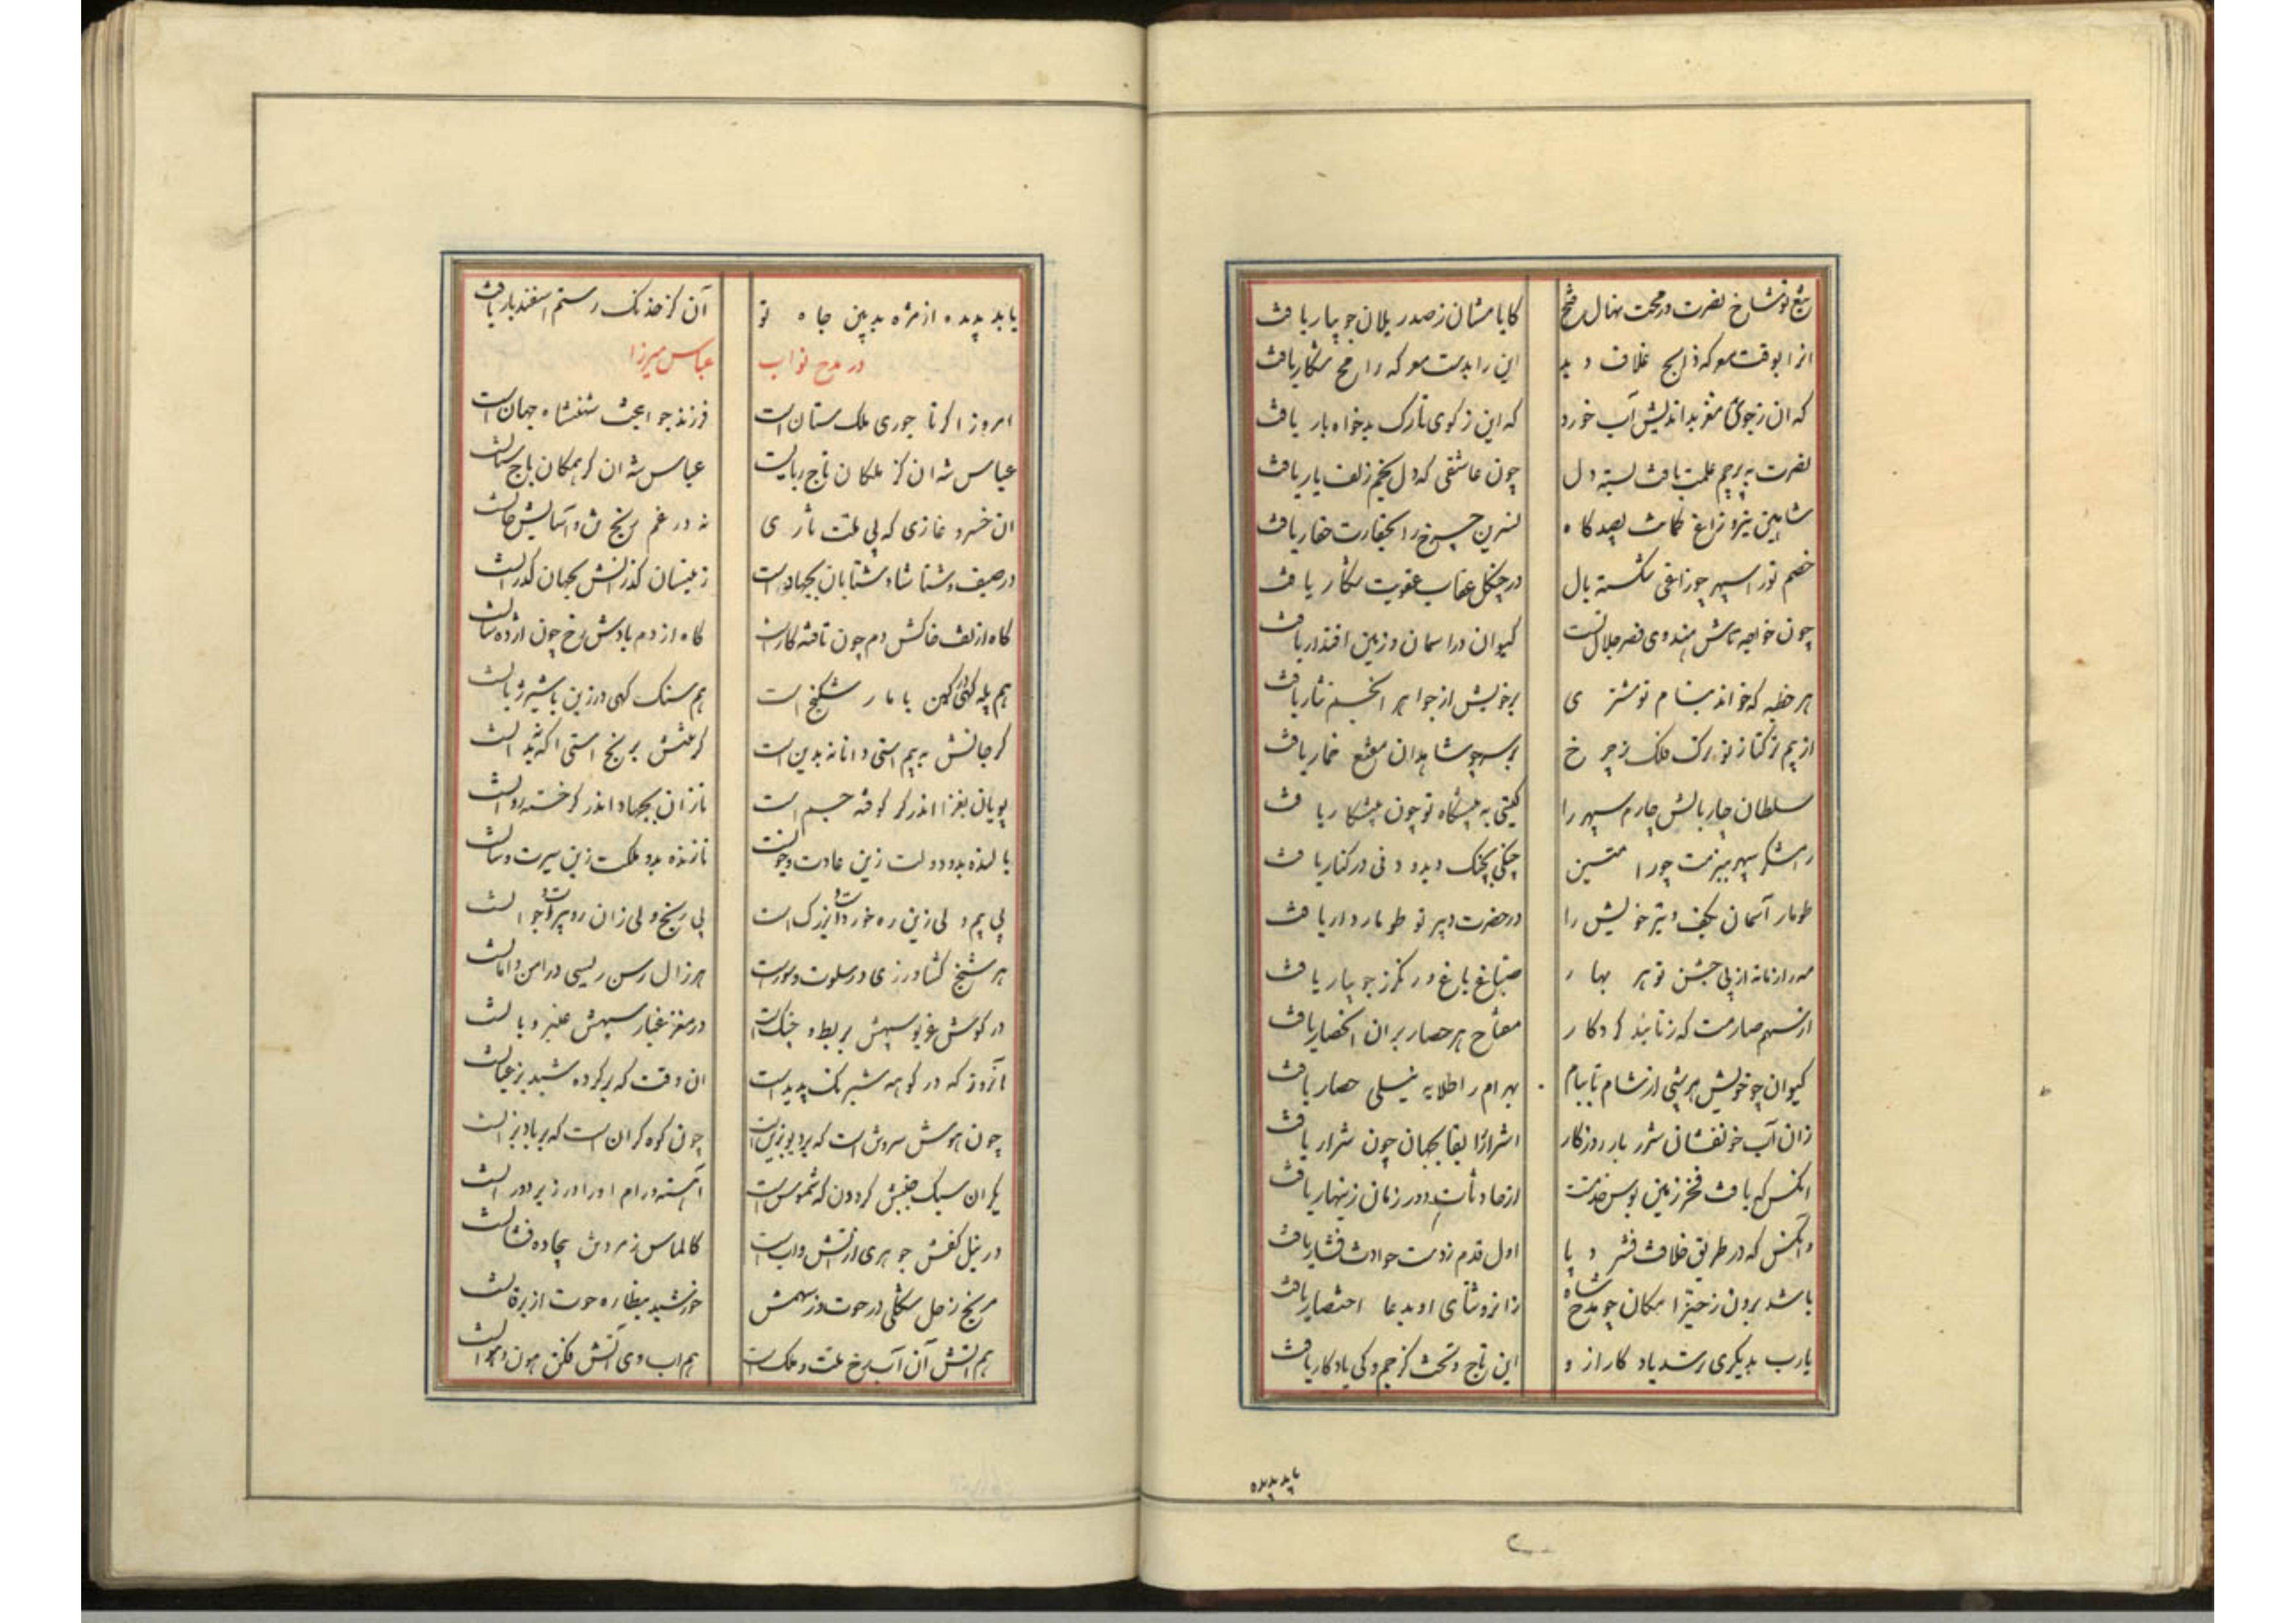 تیغ تو شاخ نصرت و رمحت نهال فتح کایا مشان ز صدر یلان جویبار یافت
انرا بوقت معرکه ذابح غلاف دید این را بدست معرکه رامح شکار یافت
که ان ز جوی مغز بداندیش آب خورد که این ز کوی تارک بدخواه بار یافت
نصرت به پرچم علمت یافت بسته دل چون عاشقی که دل بخم زلف یار یافت
شاهین نیرو زاغ کمانت بصیدکاه نسرین چرخ را بحقارت حقار یافت
خصم تو را سپهر چو زاغی شکسته بال در چنکل عقاب عقوبت شکار یافت
چون خواجه تاش هندوی قصر جلال تست کیوان در اسمان و زمین اقتدار یافت
هر خطبه که خواند بنام تو مشتری برخویش از جواهر انجم نثار یافت
از بیم ترکتاز تو ترک فلک ز چرخ بر سر چو شاهدان مقنع خمار یافت
سلطان چاربالش چارم سپهر را کیتی به پیشکاه تو چون پیشکار یافت
رامشکر سپهر ببزمت چو رامتین چنکی بچنک دید و دفی در کنار یافت
طومار آسمان بکف و تیر خویش را در حضرت دبیر تو طوماردار یافت
مه را زمانه از پی جشن تو هر بهار صباغ باغ و رنکرز جویبار یافت
از سهم صارمت که ز تابید کردکار مفتاح هر حصار بران انحصار یافت
کیوان چو خویش هر شبی از شام تا ببام بهرام را طلایه نیلی حصار یافت
زان آب خونفشان شرر بار روزکار اشرار را بقا بجهان چون شرار یافت
انکس که یافت فخر زمین بوس خدمتت از حادثات دور زمان زینهار یافت
وآنکس که در طریق خلافت فشرد پا اول قدم ز دست حوادث فشار یافت
باشد برون ز حیز امکان چو مدح شاه زانرو ثنای او بدعا اختصار یافت
یارب بدیکری رسد یادکار از و این تاج و تخت کز جم و کی یادکار یافت
یابد بدیده
یابد بدیده از مژه بدبین جاه تو آن کز خدنک رستم اسفندیار یافت
در مدح نواب عباس میرزا
امروز اکر تاجوری ملک ستان است فرزند جوانبخت شهنشاه جهان است
عباس شه ان کز ملکان تاج ربایست عباس شه ان کز همکان باج ستانست
ان خسرو غازی که پی ملت تازی نه در غم رنج تن و آسایش جانست
در صیف و شتا شاد شتابان بجهاد است زینسان کذرانش بجهان کذرانست
کاه از تف خاکش دم چون تافته کاز است کاه از دم بادش رخ چون آژده سانست
هم پله کهی در کهن با مار شکنج است هم سنک کهی در زین با شیر ژیانست
کر جانش به بیم استی دانا نه بدین است کر تنش برنج استی اکه نه بدانست
پویان بغزا اندر کر کوفته جسم است تازان بجهاد اندر کر خسته روانست
بالنده بدو دولت زین عادت و خونست نازنده بدو ملکت زین سیرت و سانست
بی بیم ولی زین ره خورد و بزرک است بی رنج ولی زان رو پیر و جوانست
هر شیخ کشاورزی در سلوت و سورست هر زال رسن ریسی در امن و امانست
در کوش غریو سپهش بربط و چنک است در مغز غبار سپهش عنبر و بانست
آنروز که در کوهه شبرنک پدید است ان وقت که بر کرده شبدیز عیانست
چون هوش سروش است که بر دیو بزین است چون کوه کران است که بر باد بزانست
یکران سبک جنبش کردون که شموس است آهسته و رام اورا در زیر دورانست
در نیل کفش جوهری از آتش و ابست کالماس زمردوش بیجاده فشانست
مریخ زحل شکلی در حوت و ز سهمش خورشید بنظاره حوت از سرطانست
هم آتش آن آب رخ ملت و ملک است هم اب وی آتش فکن هون و هوانست